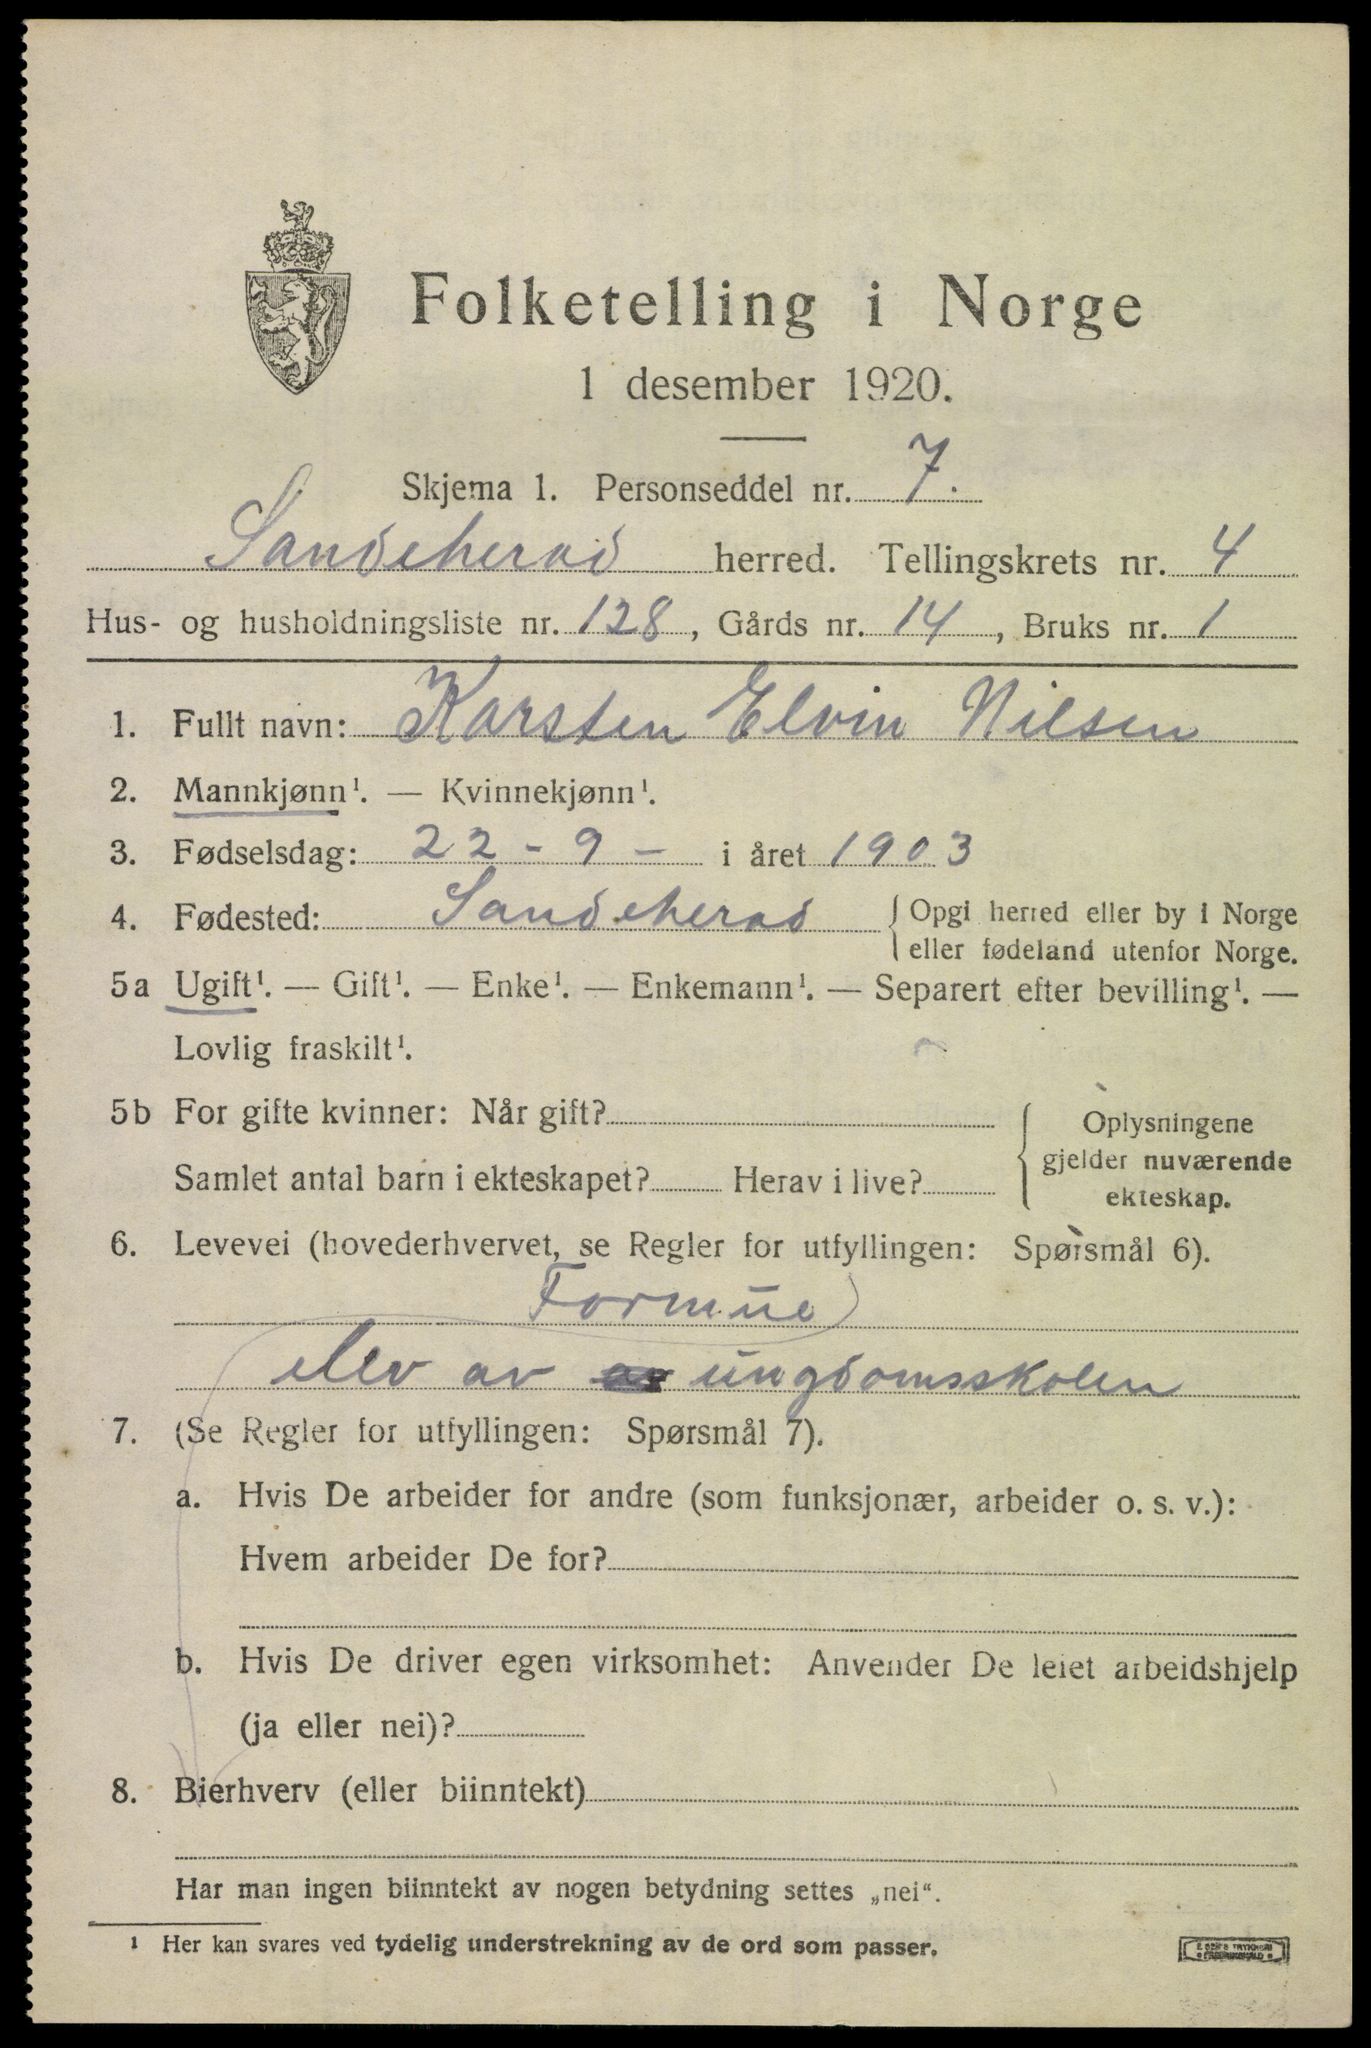 Folketelling i Norge
1 desember 1920.
Skjema 1. Personseddel nr. 7.
Sandeherad herred. Tellingskrets nr. 4
Hus- og husholdningsliste nr. 128, Gårds nr. 14, Bruks nr. 1
1. Fullt navn: Karsten Elvin Nilsen
2. Mannkjønn¹. — Kvinnekjønn¹.
3. Fødselsdag: 22 - 9 - i året 1903
4. Fødested: Sandeherad { Opgi herred eller by i Norge
eller fødeland utenfor Norge.
5a Ugift¹. — Gift¹. — Enke¹. — Enkemann¹. — Separert efter bevilling¹. —
Lovlig fraskilt¹.
5b For gifte kvinner: Når gift? { Oplysningene
gjelder nuværende
Samlet antal barn i ekteskapet? Herav i live? ekteskap.
6. Levevei (hovederhvervet, se Regler for utfyllingen: Spørsmål 6).
Formue
elev av ungdomsskolen
7. (Se Regler for utfyllingen: Spørsmål 7).
a. Hvis De arbeider for andre (som funksjonær, arbeider o. s. v.):
Hvem arbeider De for?
b. Hvis De driver egen virksomhet: Anvender De leiet arbeidshjelp
(ja eller nei)?
8. Bierhverv (eller biinntekt)
Har man ingen biinntekt av nogen betydning settes „nei“.
¹ Her kan svares ved tydelig understrekning av de ord som passer.